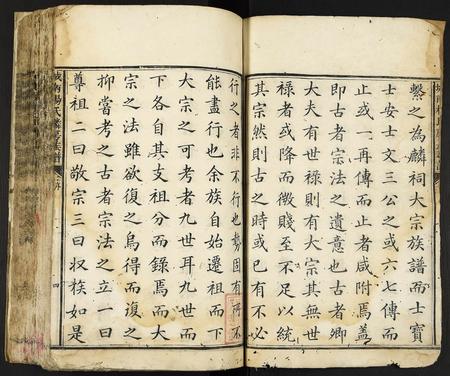 繫之為麟祠大宗族譜而士寶
士安士文三公之或六七傳而
止或一再傳而止者咸附焉蓋
即古者宗法之遺意也古者卿
大夫有世祿則有大宗其無世
祿者或降而微賤至不足以統
其宗然則古之時或已有不必
行之者非不行也勢固有所不
能盡行也余族自始遷祖而下
大宗之可考者九世耳九世而
下各自其支祖分而錄焉而大
宗之法雖欲復之烏得而復之
抑嘗考之古者宗法之立一曰
尊祖二曰敬宗三曰收族如是
四